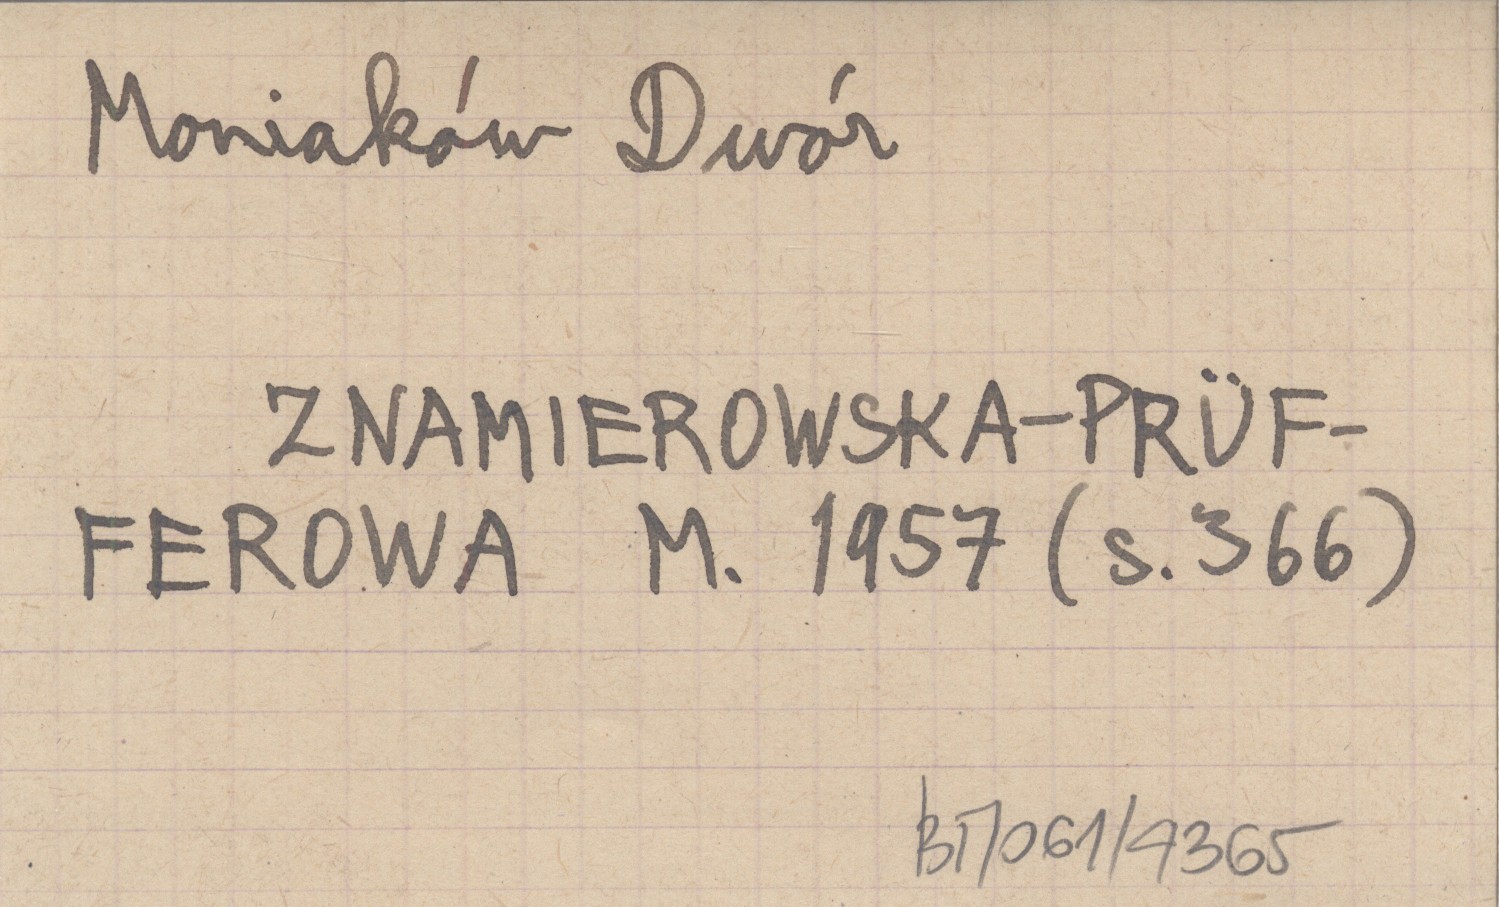 Moniaków Dwór
ZNAMIEROWSKA-PRÜF-
FEROWA M. 1957 (s.366)
BT/061/4365